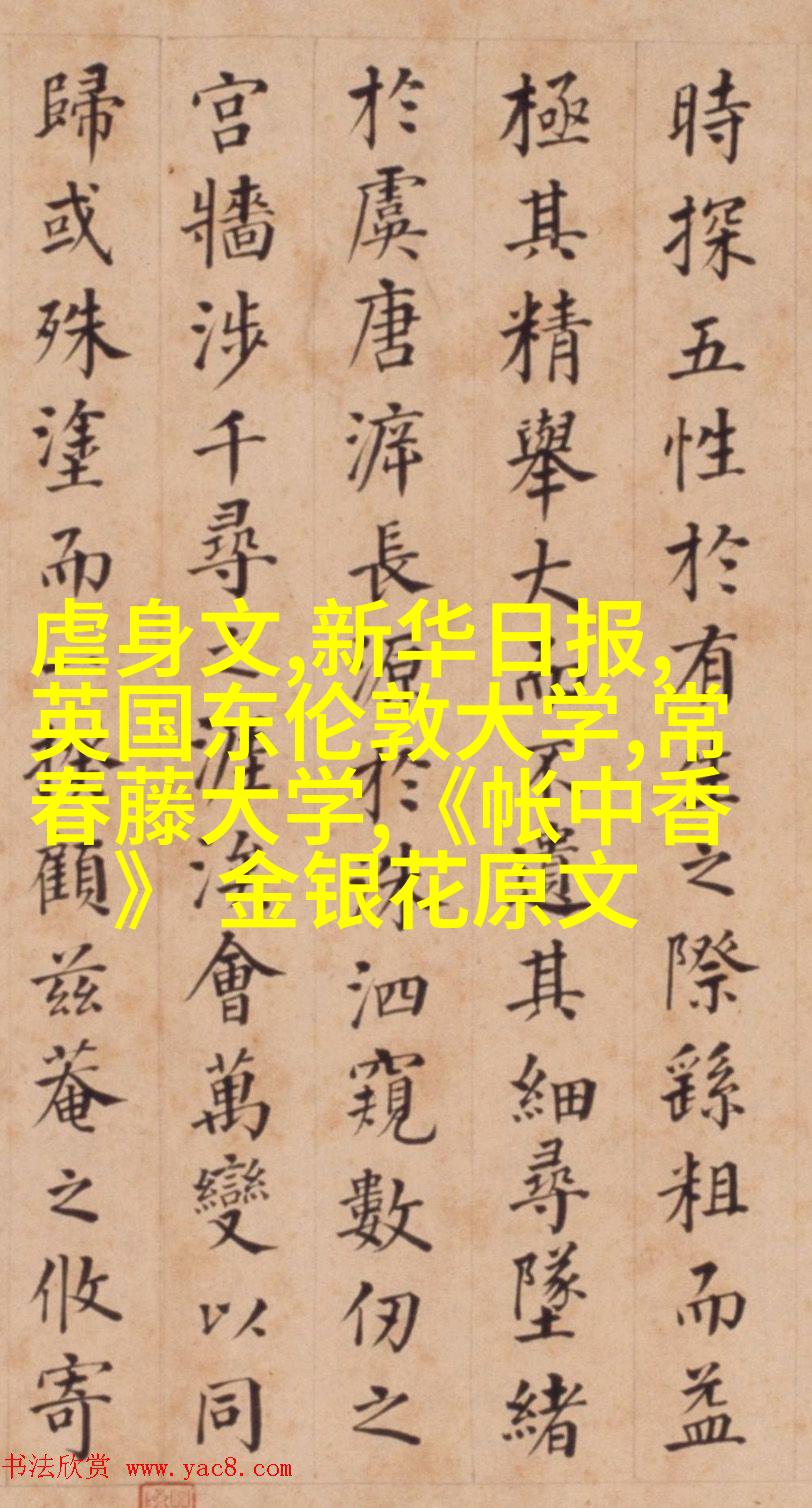 時探五性於有生之際繇粗而益
極其精舉大而不遺其細尋墜緒
於虞唐濬長源於洙泗窺數仞之
宮牆涉千尋之涯涘會萬變以同
歸或殊塗而一揆顧兹菴之攸寄
虐身文,新华日报,
英国东伦敦大学,常
春藤大学,《帐中香
》 金银花原文
书法欣赏 www.yac8.com